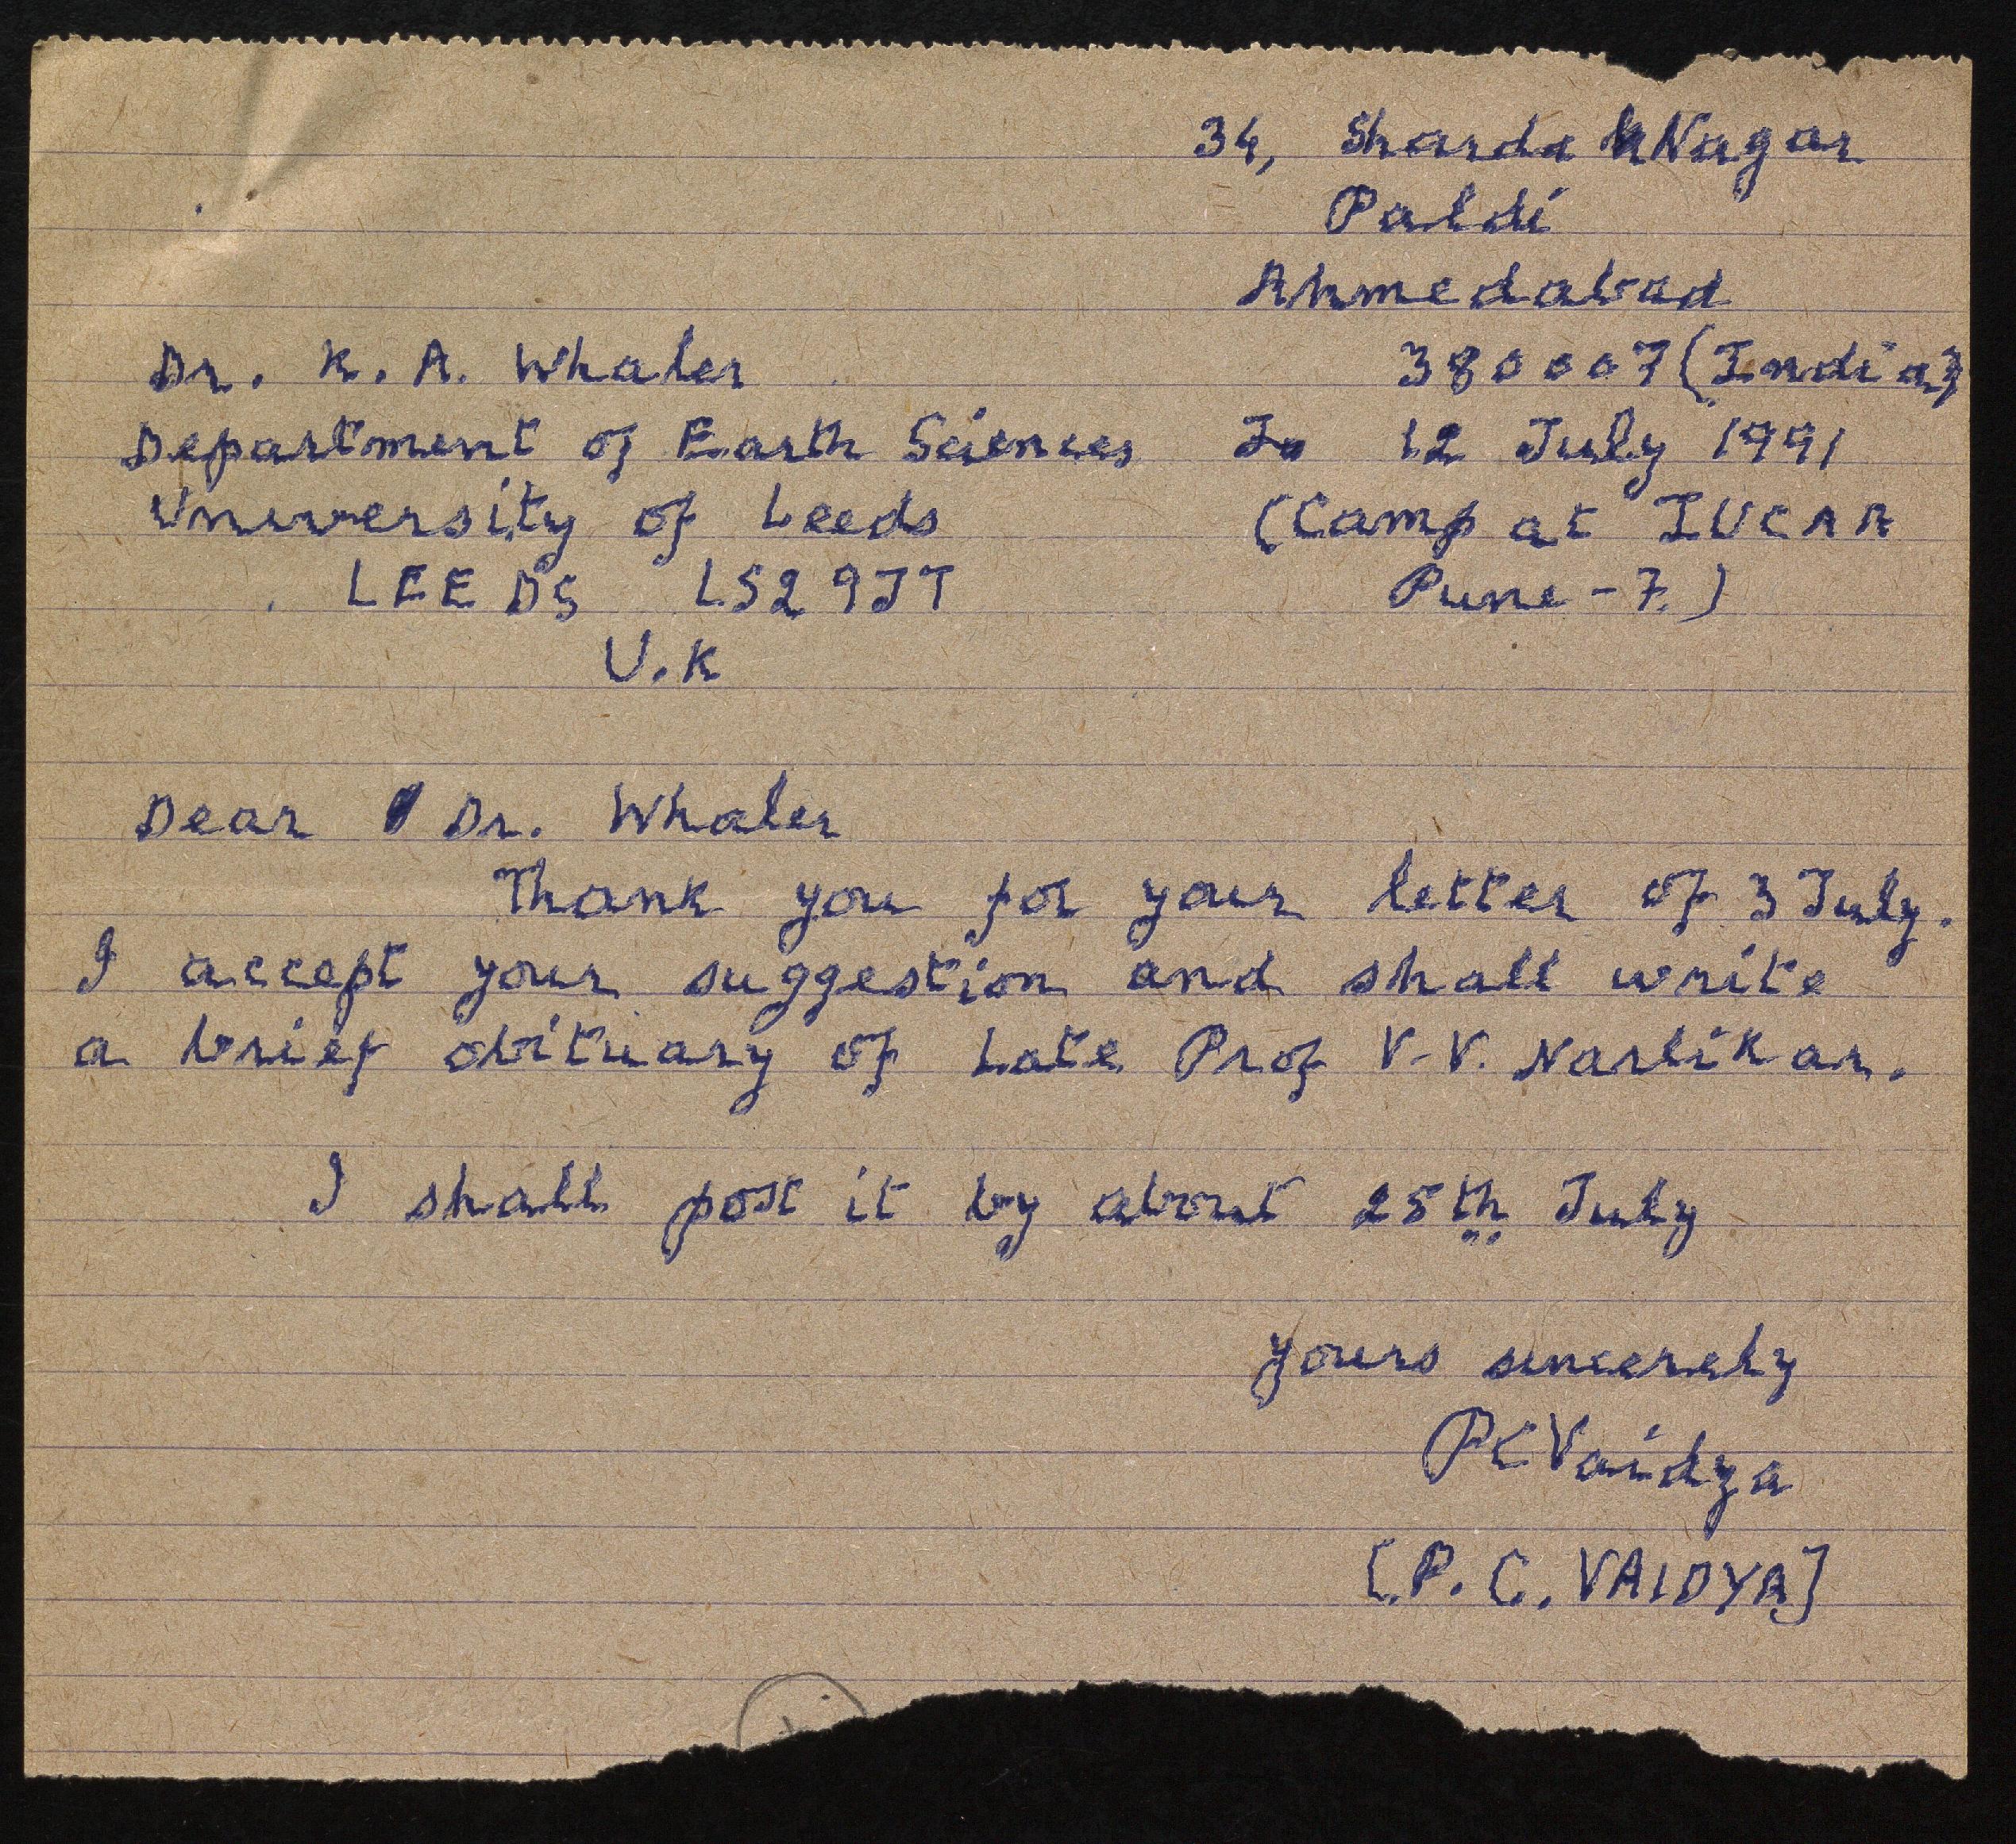 34, Sharda Nagar
Paldi
Ahmedabad
380007 (India)
12 July 1991
(Camp at IUCAA
Pune-7.)
Dr. K. A. Whaler
Department of Earth Sciences
University of Leeds
LEEDS LS2 9JT
U.K
Dear Dr. Whaler
Thank you for your letter of 3 July.
I accept your suggestion and shall write
a brief obituary of Late Prof V.V. Narlikar.
I shall post it by about 25th July
Yours sincerely
PCVaidya
[P. C. VAIDYA]